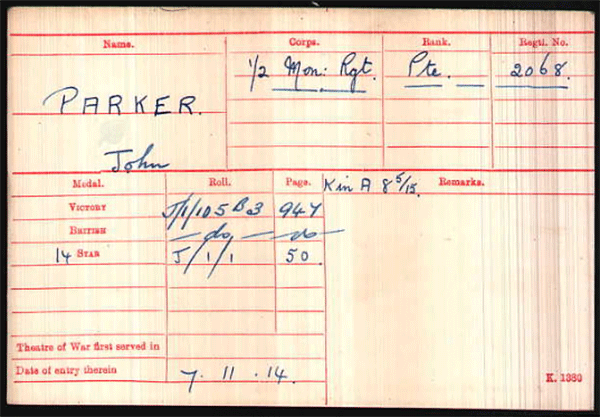 Name. Corps. Rank. Regtl. No.
1/2 Mon: Rgt. Pte. 2068.
PARKER.
John
Medal. Roll. Page. K in A 8/5/15. Remarks.
VICTORY J/1/105 B3 947
BRITISH — do — do
14 STAR J/1/1 50.
Theatre of War first served in
Date of entry therein 7. 11. 14.
K. 1380